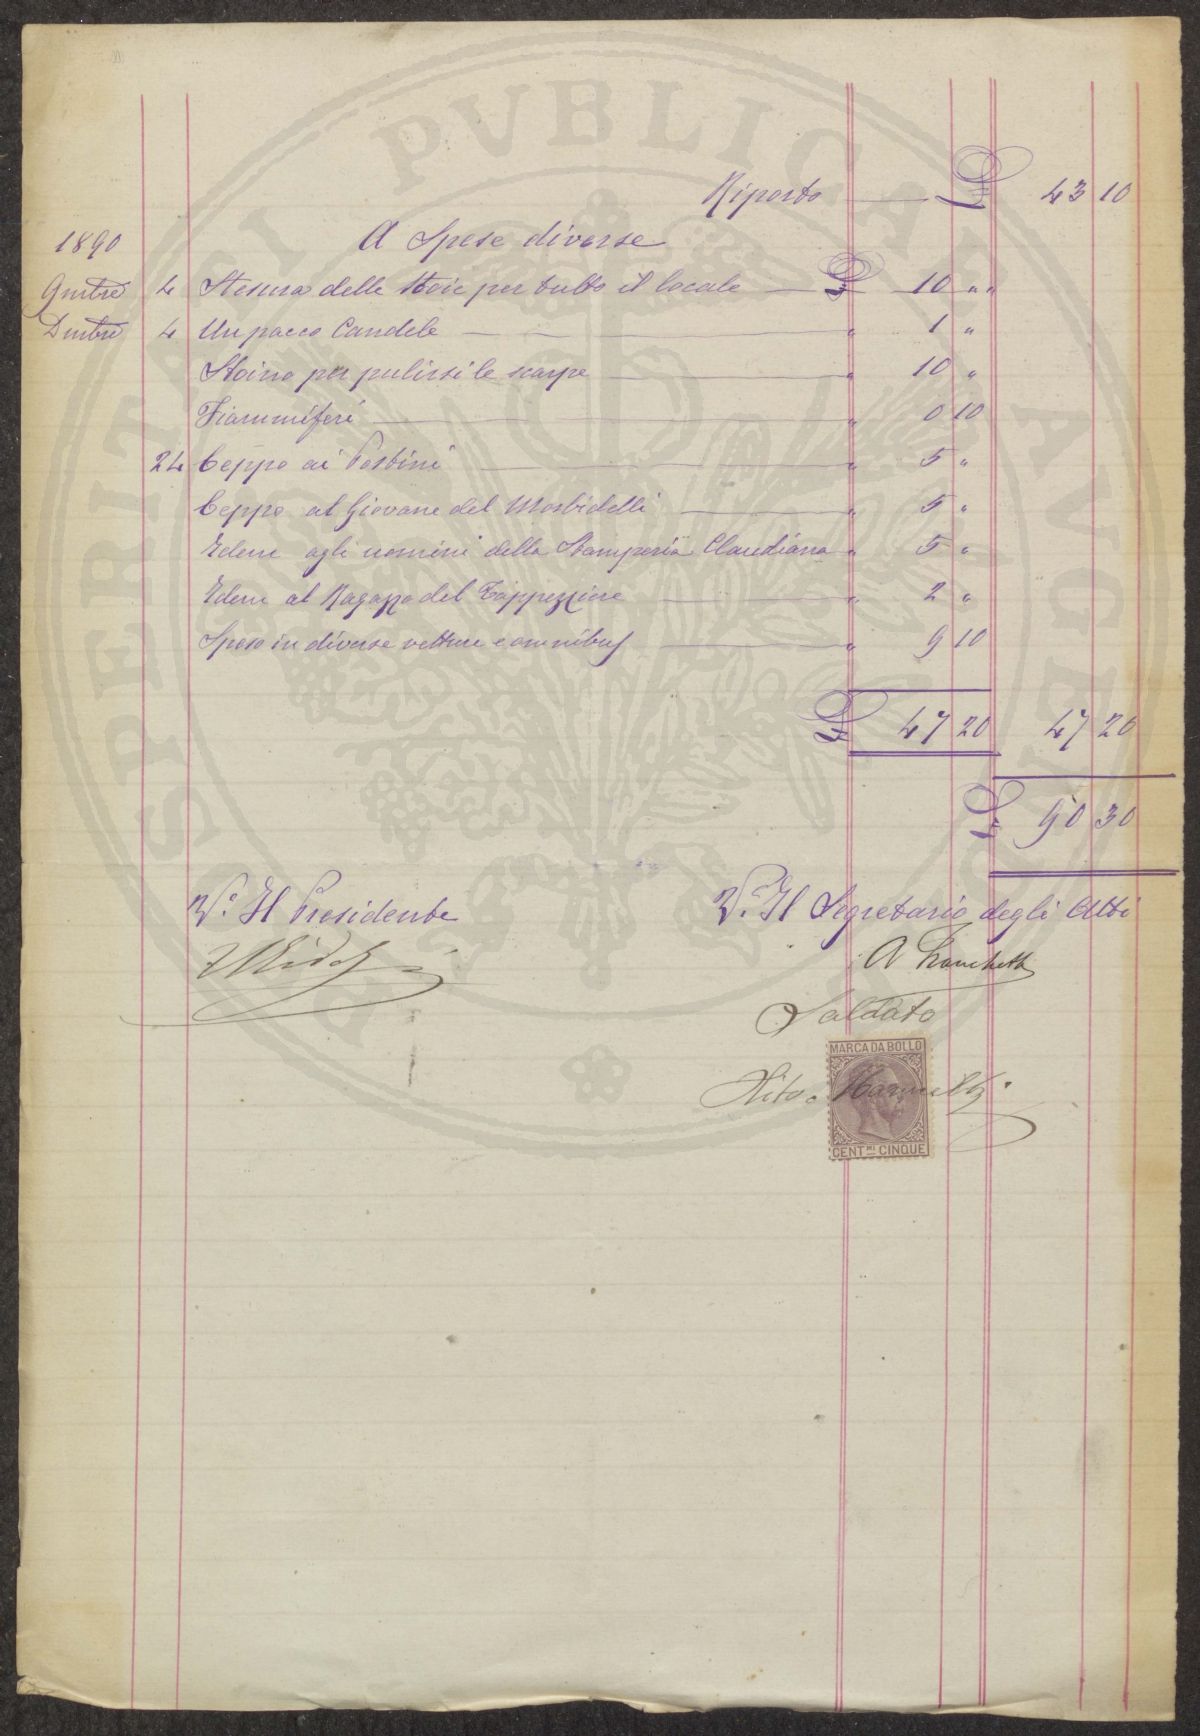 Riporto £ 43 10
1890 A Spese diverse
9mbre 4 Stesura delle stoie per tutto il locale £ 10 " "
Dmbre 4 Un pacco Candele " 1 "
Stoino per pulirsi le scarpe " 10 "
Fiammiferi " 0 10
24 Ceppo ai Postini " 5 "
Ceppo al Giovane del Morbidelli " 5 "
Edem agli uomini della Stamperia Claudiana " 5 "
Edem al Ragazzo del Tappezziere " 2 "
Speso in diverse vetture e omnibus " 9 10
£ 47 20 47 20
£ 90 30
V.° Il Presidente
V.° Il Segretario degli Atti
A
Saldato
MARCA DA BOLLO
CENT.MI CINQUE
PUBLICAE
AUGENDAE
PROSPERITATI